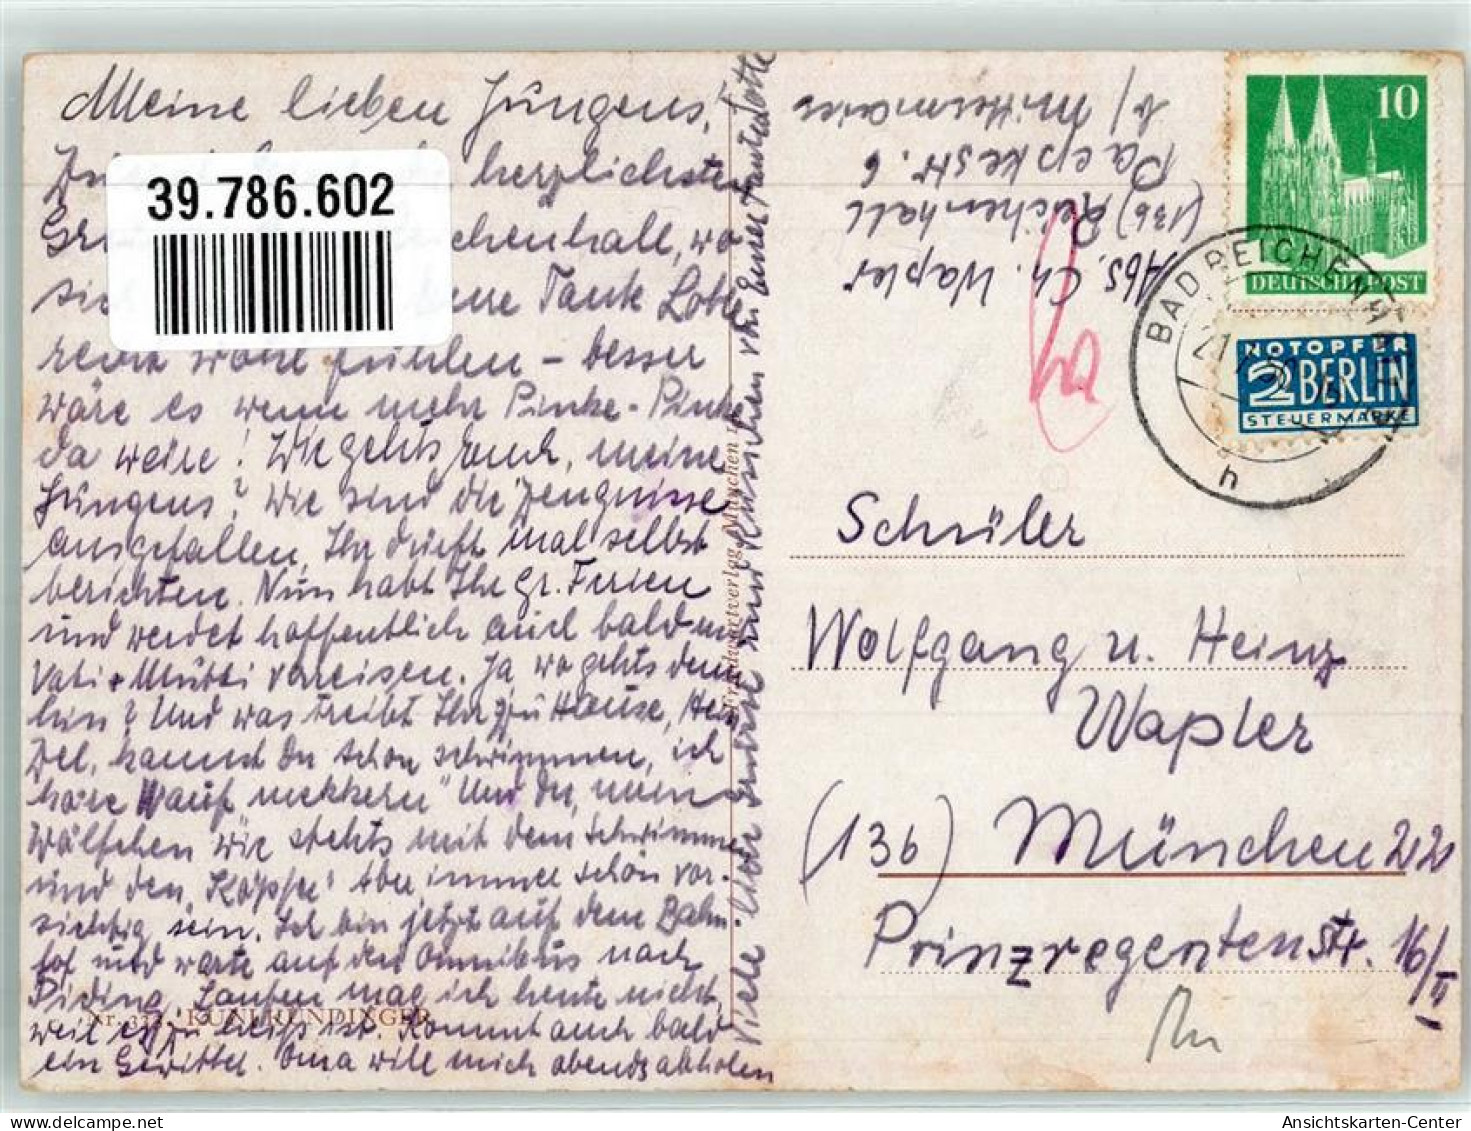 Meine lieben Jungens,
herzlichsten
39.786.602
Reichenhall, wo
sich Tante Lotte
recht wohl fühlen – besser
wäre es wenn mehr Pinke-Pinke
da wäre! Wie gehts Euch, meine
Jungens? Wie sind die Zeugnisse
ausgefallen, Ihr dürft mal selbst
berichten. Nun habt Ihr gr. Ferien
und werdet hoffentlich auch bald m.
Vati + Mutti verreisen. Ja wo gehts denn
hin? Und was treibt Ihr zu Hause,
kannst du schon schwimmen, ich
höre "auf meckern" Und du, mein
Wölfchen wie stehts mit dem Schwimmen
und den "Köpfer" Aber immer schön vor-
sichtig sein. Ich bin jetzt auf dem Bahn-
hof und warte auf den Omnibus nach
Piding, Laufen mag ich heute nicht,
weil es zu heiß ist. Kommt auch bald
ein Gewitter. Oma will mich abends abholen
Nr. KUNI HUNDINGER
Viele liebe Grüsse und Küsschen von Eurer Tante Lotte
verlag München
Abs. Ch. Wapler
(13b) Reichenhall
Paepkestr. 6
b/ Mittermaier
10
DEUTSCHE POST
NOTOPFER
2 BERLIN
STEUERMARKE
BAD REICHENHALL
h
Schüler
Wolfgang u. Heinz
Wapler
(13b) München 22
Prinzregentenstr. 16/II
Ansichtskarten-Center